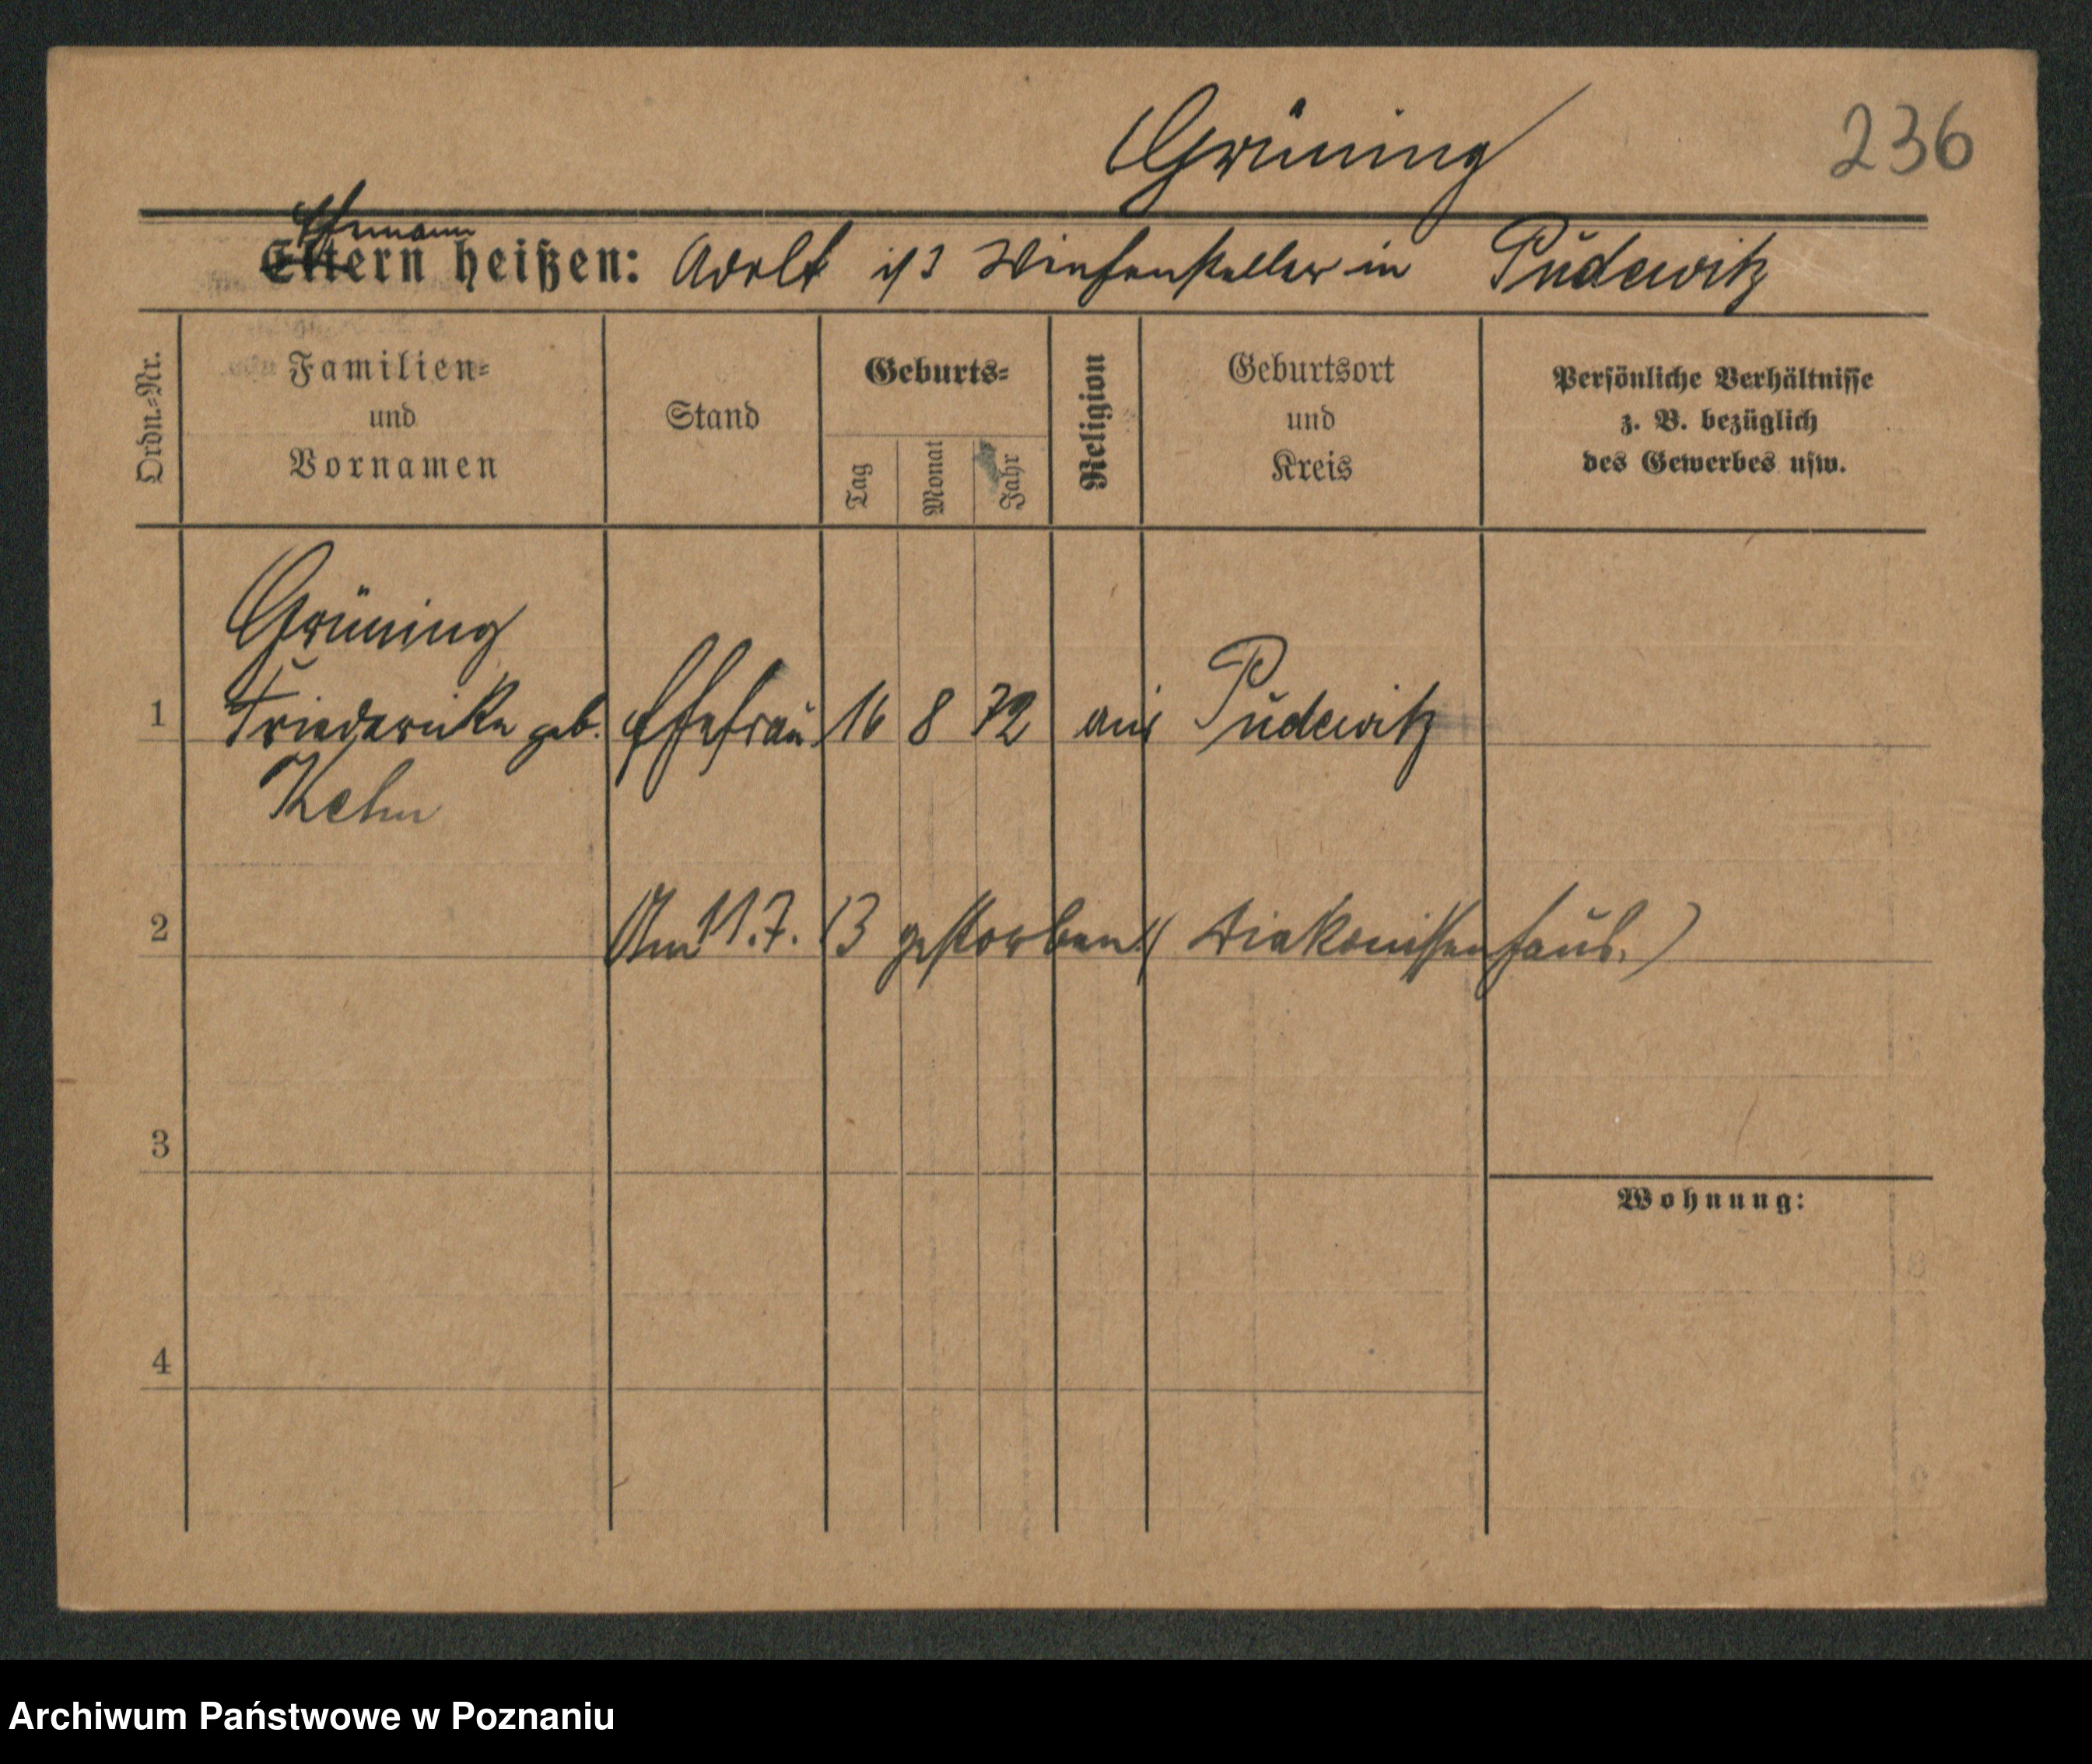 Grüning
236
Ehemann
Eltern heißen: Adolf ist Weichensteller in Pudewitz
Ordn.=Nr.
Familien=
und
Vornamen
Stand
Geburts=
Tag
Monat
Jahr
Religion
Geburtsort
und
Kreis
Persönliche Verhältnisse
z. B. bezüglich
des Gewerbes usw.
Grüning
1 Friederike geb. Ehefrau 16 8 72 aus Pudewitz
Kehn
2 Am 11.7.13 gestorben (Diakonissenhaus.)
3
Wohnung:
4
Archiwum Państwowe w Poznaniu